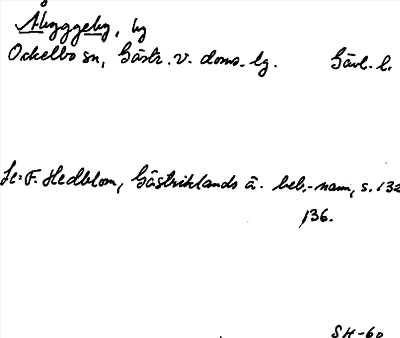 Åbyggeby, by
Ockelbo sn, Gästr. v. doms.-lg. Gävl. l.
Se: F. Hedblom, Gästriklands ä. beb.-namn, s. 132
136.
SH-60